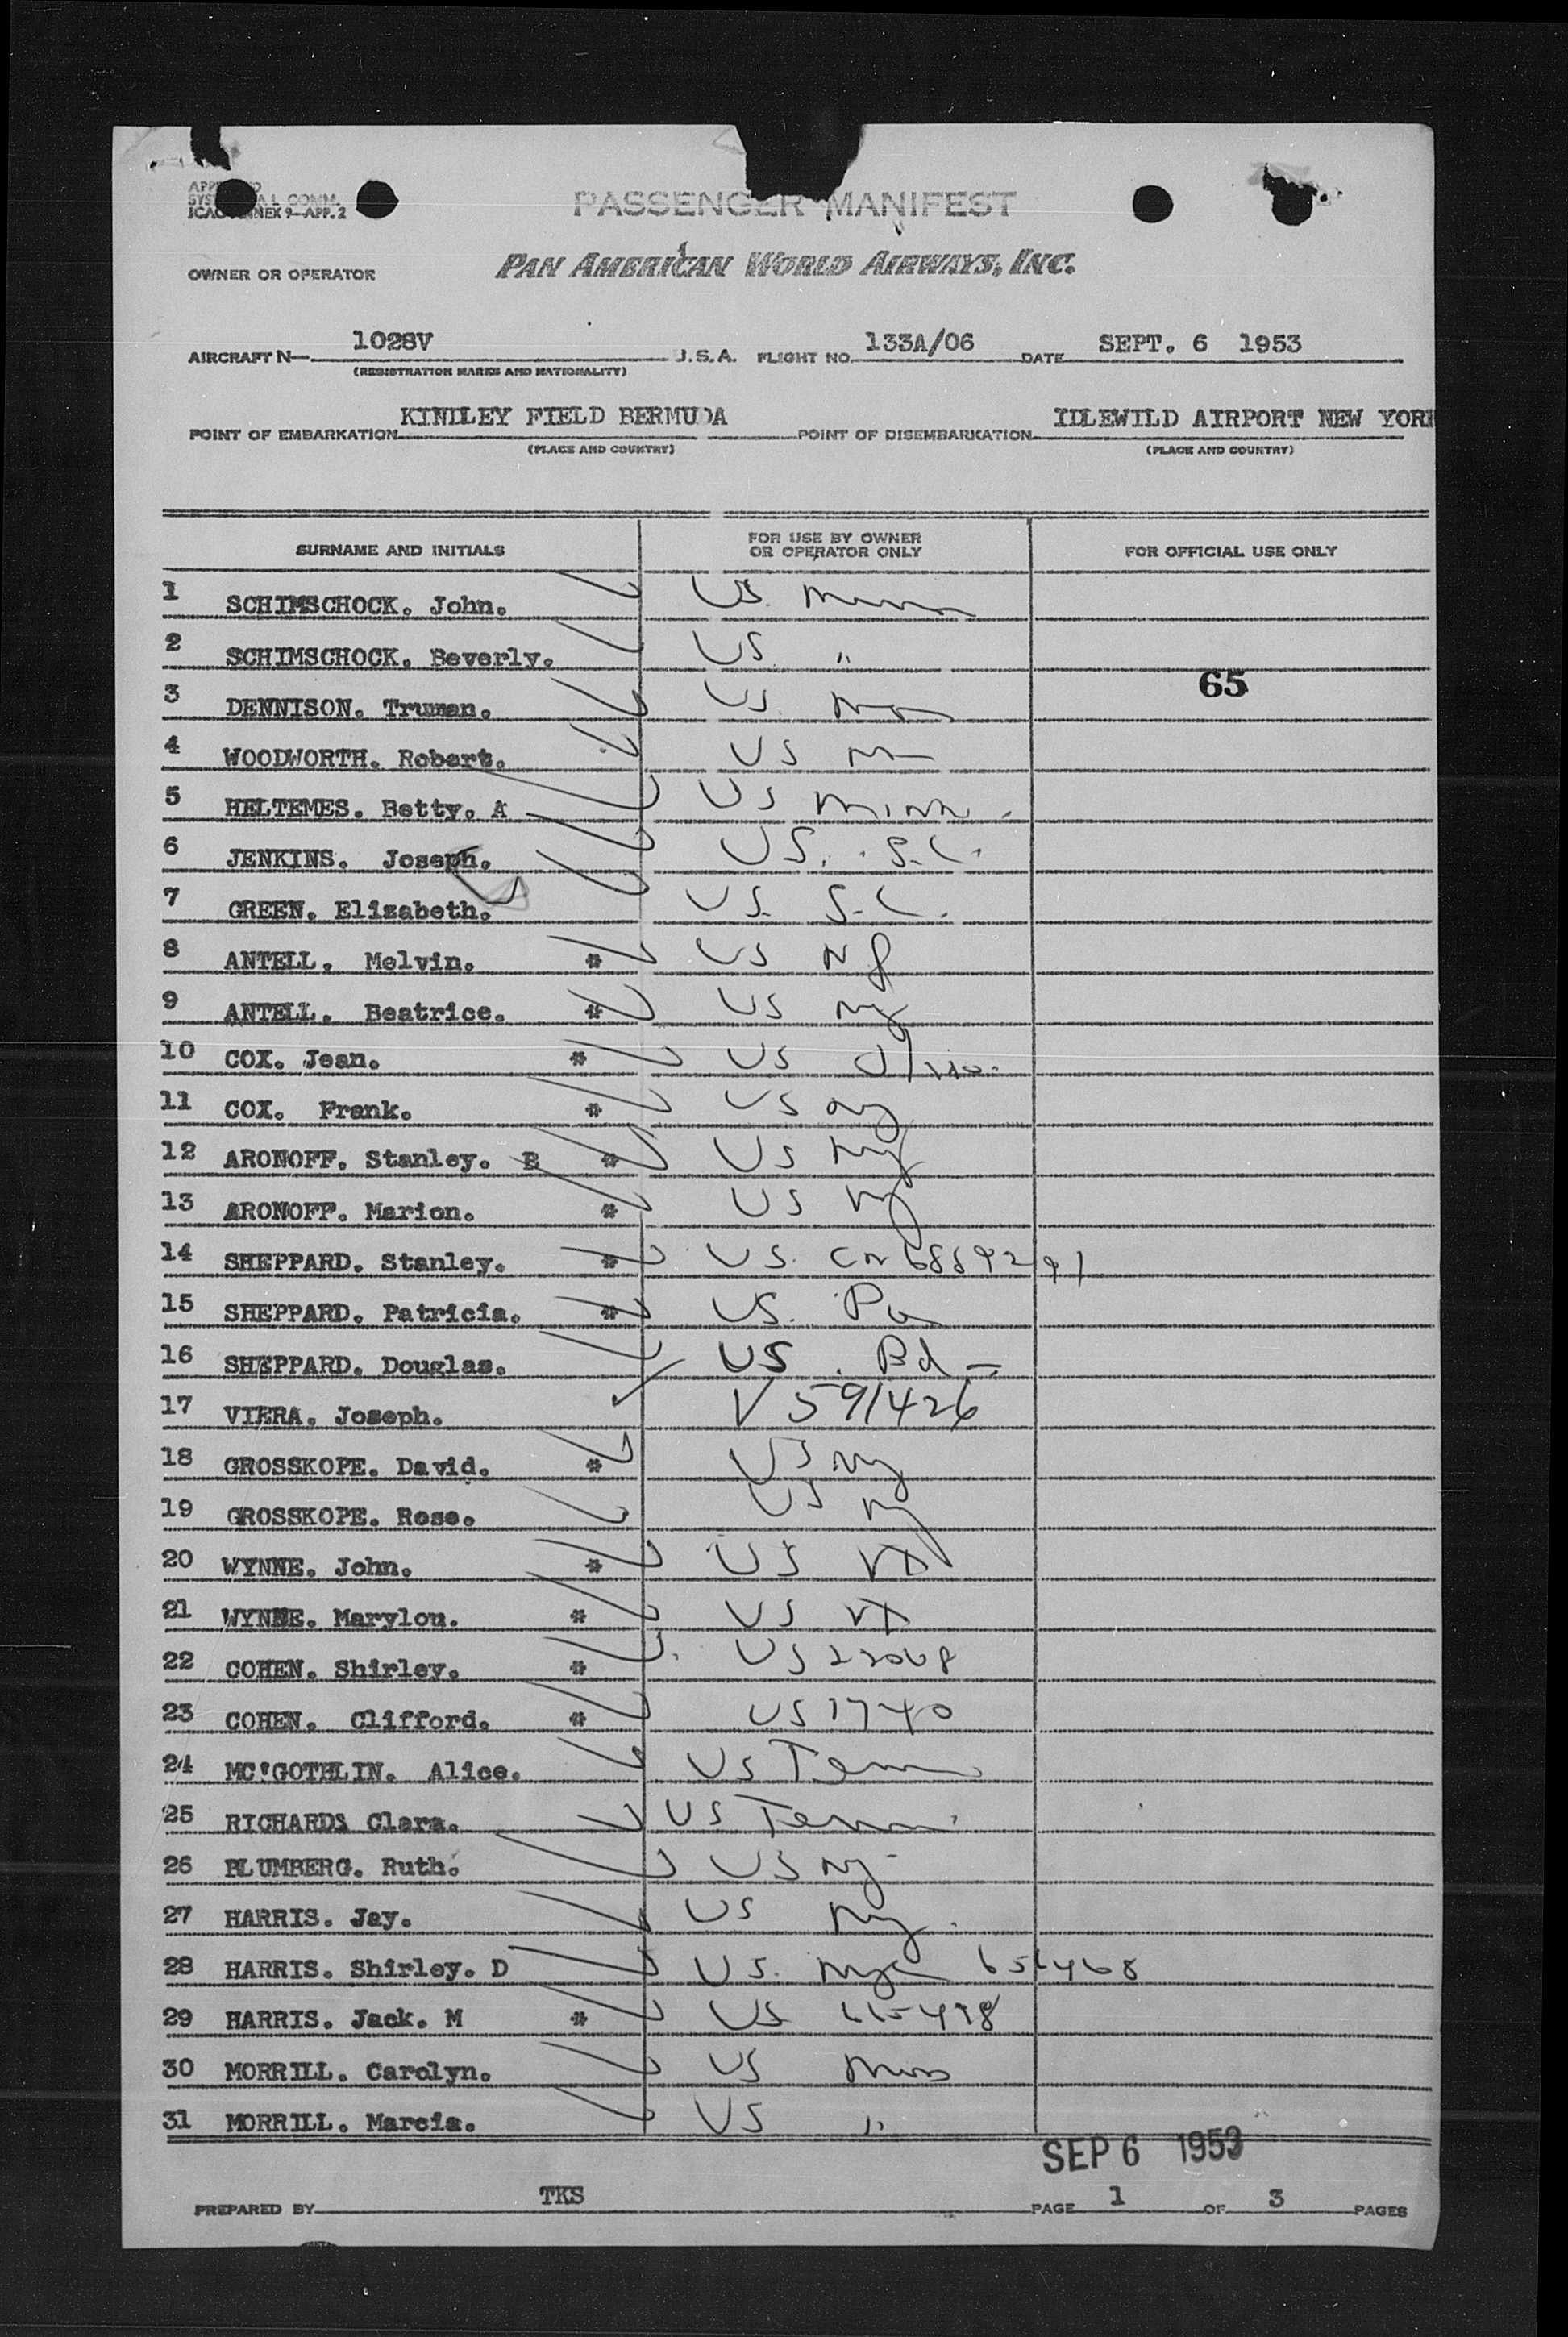 PASSENGER MANIFEST
ICAO ANNEX 9-APP. 2
OWNER OR OPERATOR PAN AMERICAN WORLD AIRWAYS, INC.
AIRCRAFT N- 1028V U.S.A. FLIGHT NO. 133A/06 DATE SEPT. 6 1953
(REGISTRATION MARKS AND NATIONALITY)
POINT OF EMBARKATION KINDLEY FIELD BERMUDA POINT OF DISEMBARKATION IDLEWILD AIRPORT NEW YORK
(PLACE AND COUNTRY) (PLACE AND COUNTRY)
SURNAME AND INITIALS FOR USE BY OWNER OR OPERATOR ONLY FOR OFFICIAL USE ONLY
1 SCHIMSCHOCK. John. US Minn
2 SCHIMSCHOCK. Beverly. US "
65
3 DENNISON. Truman. US
4 WOODWORTH. Robert. US
5 HELTEMES. Betty. A US Minn.
6 JENKINS. Joseph. US. S.C.
7 GREEN. Elizabeth. US. S.C.
8 ANTELL. Melvin. * US NY
9 ANTELL. Beatrice. * US NY
10 COX. Jean. * US
11 COX. Frank. * US NY
12 ARONOFF. Stanley. B * US NY
13 ARONOFF. Marion. * US NY
14 SHEPPARD. Stanley. * US.
15 SHEPPARD. Patricia. * US. Pa
16 SHEPPARD. Douglas. US Bd
17 VIERA. Joseph. V591426
18 GROSSKOPE. David. * US NY
19 GROSSKOPE. Rose. US NY
20 WYNNE. John. * US
21 WYNNE. Marylou. * US
22 COHEN. Shirley. * US 22068
23 COHEN. Clifford. * US 1740
24 MC'GOTHLIN. Alice. US Tenn
25 RICHARDS Clara. US Tenn
26 BLUMBERG. Ruth. US NY
27 HARRIS. Jay. US NY.
28 HARRIS. Shirley. D US.
29 HARRIS. Jack. M * US
30 MORRILL. Carolyn. US Mass
31 MORRILL. Marcia. US "
SEP 6 1953
PREPARED BY TKS PAGE 1 OF 3 PAGES